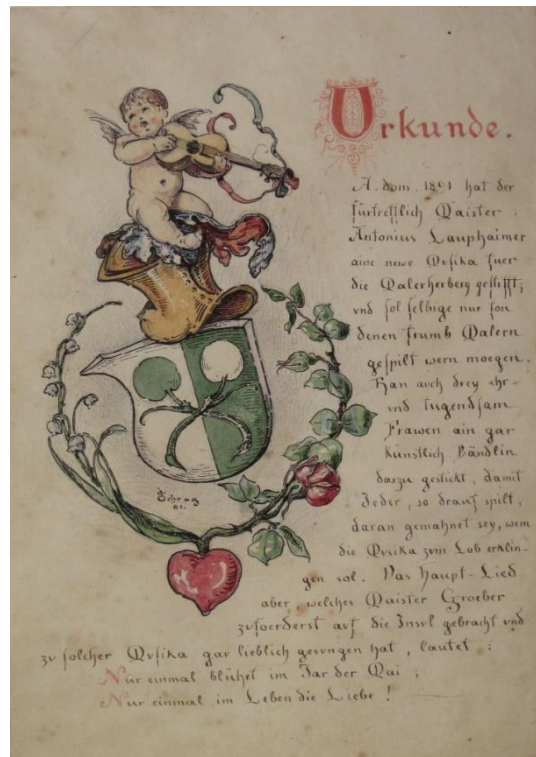 Urkunde.
A. dom. 1891 hat der
fürtrefflich Maister
Antonius Lauphaimer
aine newe Mvsika fuer
die Malerherberg gestifft,
vnd sol selbige nur fon
denen frumb Malern
gespilt wern moegen.
Han auch drey ehr=
vnd tugendsam
Frawen ain gar
künstlich Bändlin
darzu gestickt, damit
Jeder, so drauf spilt,
daran gemahnet sey, wem
die Mvsika zvm Lob erklin-
gen sol. Das Haupt-Lied
aber, welches Maister Groeber
zvfoerderst avf die Insvl gebracht vnd
zv solcher Mvsika gar lieblich gesvngen hat, lautet:
Nur einmal blühet im Jar der Mai,
Nur einmal im Leben die Liebe!
91.